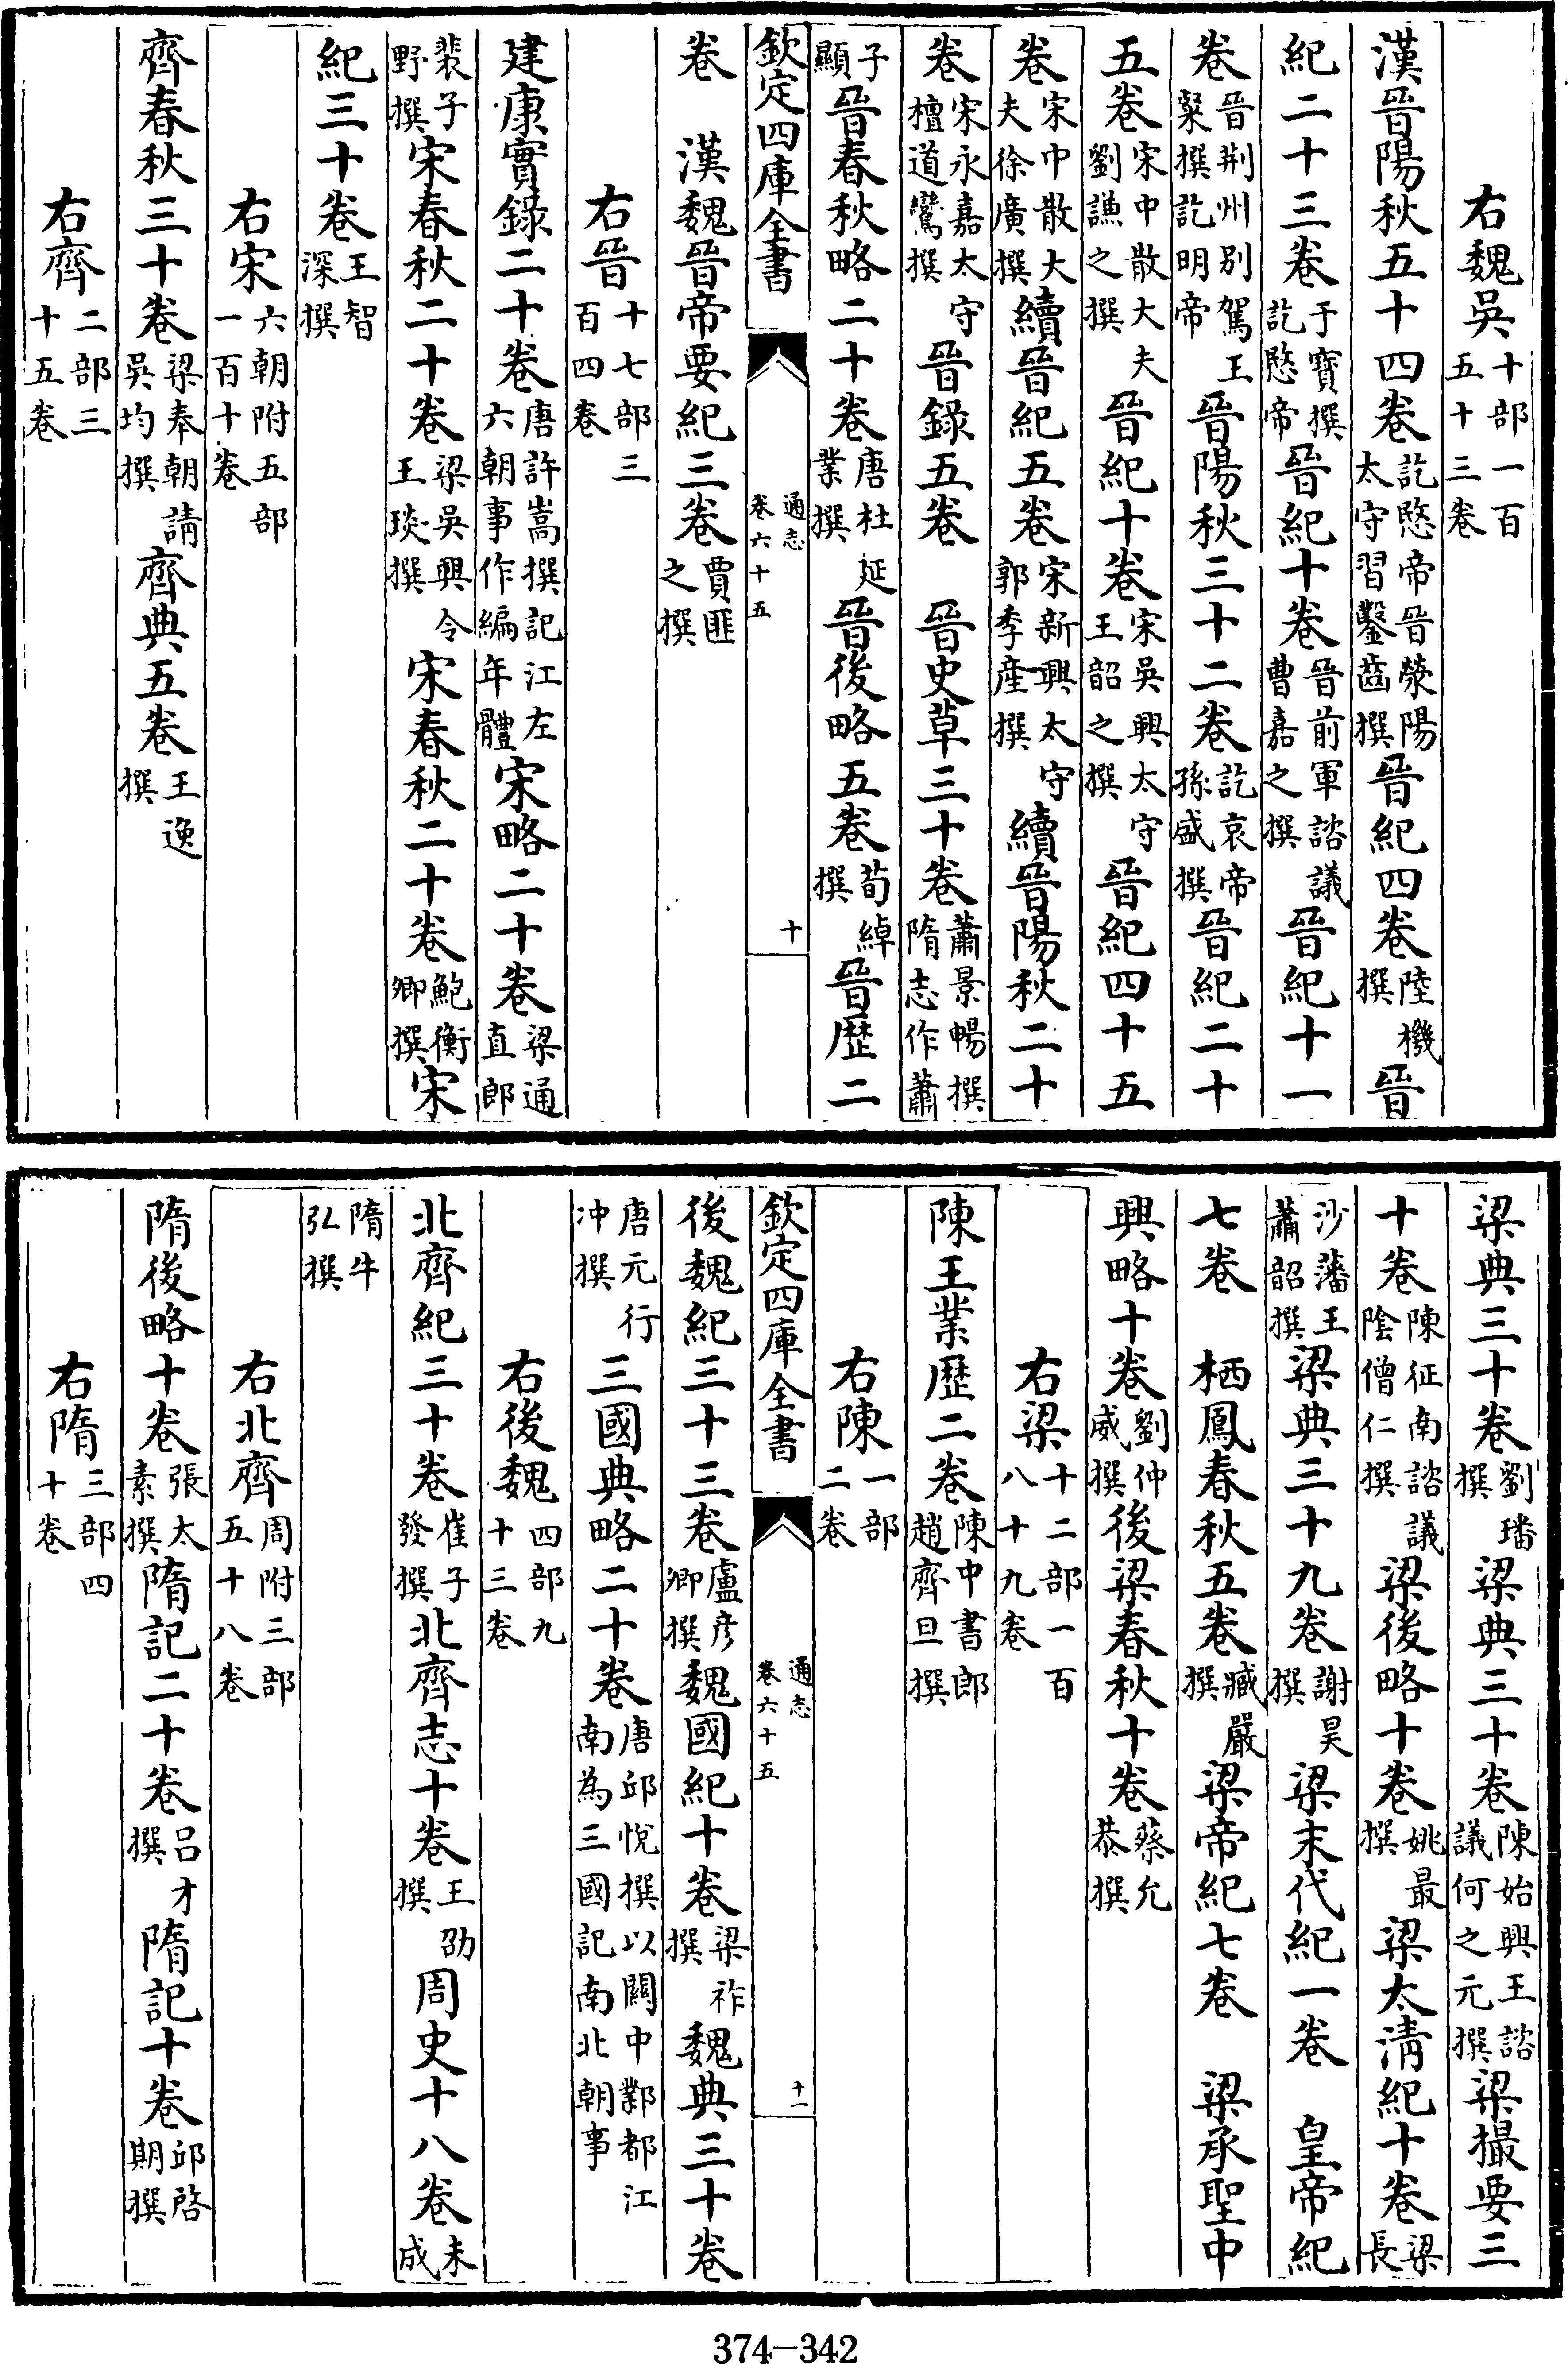 右魏吳十部一百五十三卷
漢晉陽秋五十四卷訖愍帝晉滎陽太守習鑿齒撰晉紀四卷陸機撰晉
紀二十三卷于寶撰訖愍帝晉紀十卷晉前軍諮議曹嘉之撰晉紀十一
卷晉荆州別駕王粲撰訖明帝晉陽秋三十二卷訖哀帝孫盛撰晉紀二十
五卷宋中散大夫劉謙之撰晉紀十卷宋吳興太守王韶之撰晉紀四十五
卷宋中散大夫徐廣撰續晉紀五卷宋新興太守郭季産撰續晉陽秋二十
卷宋永嘉太守檀道鸞撰晉錄五卷晉史草三十卷蕭景暢撰隋志作蕭
子顯晉春秋略二十卷唐杜延業撰晉後略五卷荀綽撰晉歷二
欽定四庫全書 通志卷六十五 十
卷漢魏晉帝要紀三卷賈匪之撰
右晉十七部三百四卷
建康實錄二十卷唐許嵩撰記江左六朝事作編年體宋略二十卷梁通直郎
裴子野撰宋春秋二十卷梁吳興令王琰撰宋春秋二十卷鮑衡卿撰宋
紀三十卷王智深撰
右宋六朝附五部一百十卷
齊春秋三十卷梁奉朝請吳均撰齊典五卷王逸撰
右齊二部三十五卷
梁典三十卷劉璠撰梁典三十卷陳始興王諮議何之元撰梁撮要三
十卷陳征南諮議陰僧仁撰梁後略十卷姚最撰梁太清紀十卷梁長
沙藩王蕭韶撰梁典三十九卷謝昊撰梁末代紀一卷皇帝紀
七卷栖鳳春秋五卷臧嚴撰梁帝紀七卷梁承聖中
興略十卷劉仲威撰後梁春秋十卷蔡允恭撰
右梁十二部一百八十九卷
陳王業歷二卷陳中書郎趙齊旦撰
右陳一部二卷
欽定四庫全書 通志卷六十五 十一
後魏紀三十三卷盧彦卿撰魏國紀十卷梁祚撰魏典三十卷
唐元行冲撰三國典略二十卷唐邱悅撰以關中鄴都江南為三國記南北朝事
右後魏四部九十三卷
北齊紀三十卷崔子發撰北齊志十卷王劭撰周史十八卷未成
隋牛弘撰
右北齊周附三部五十八卷
隋後略十卷張太素撰隋記二十卷吕才撰隋記十卷邱啓期撰
右隋三部四十卷
374-342